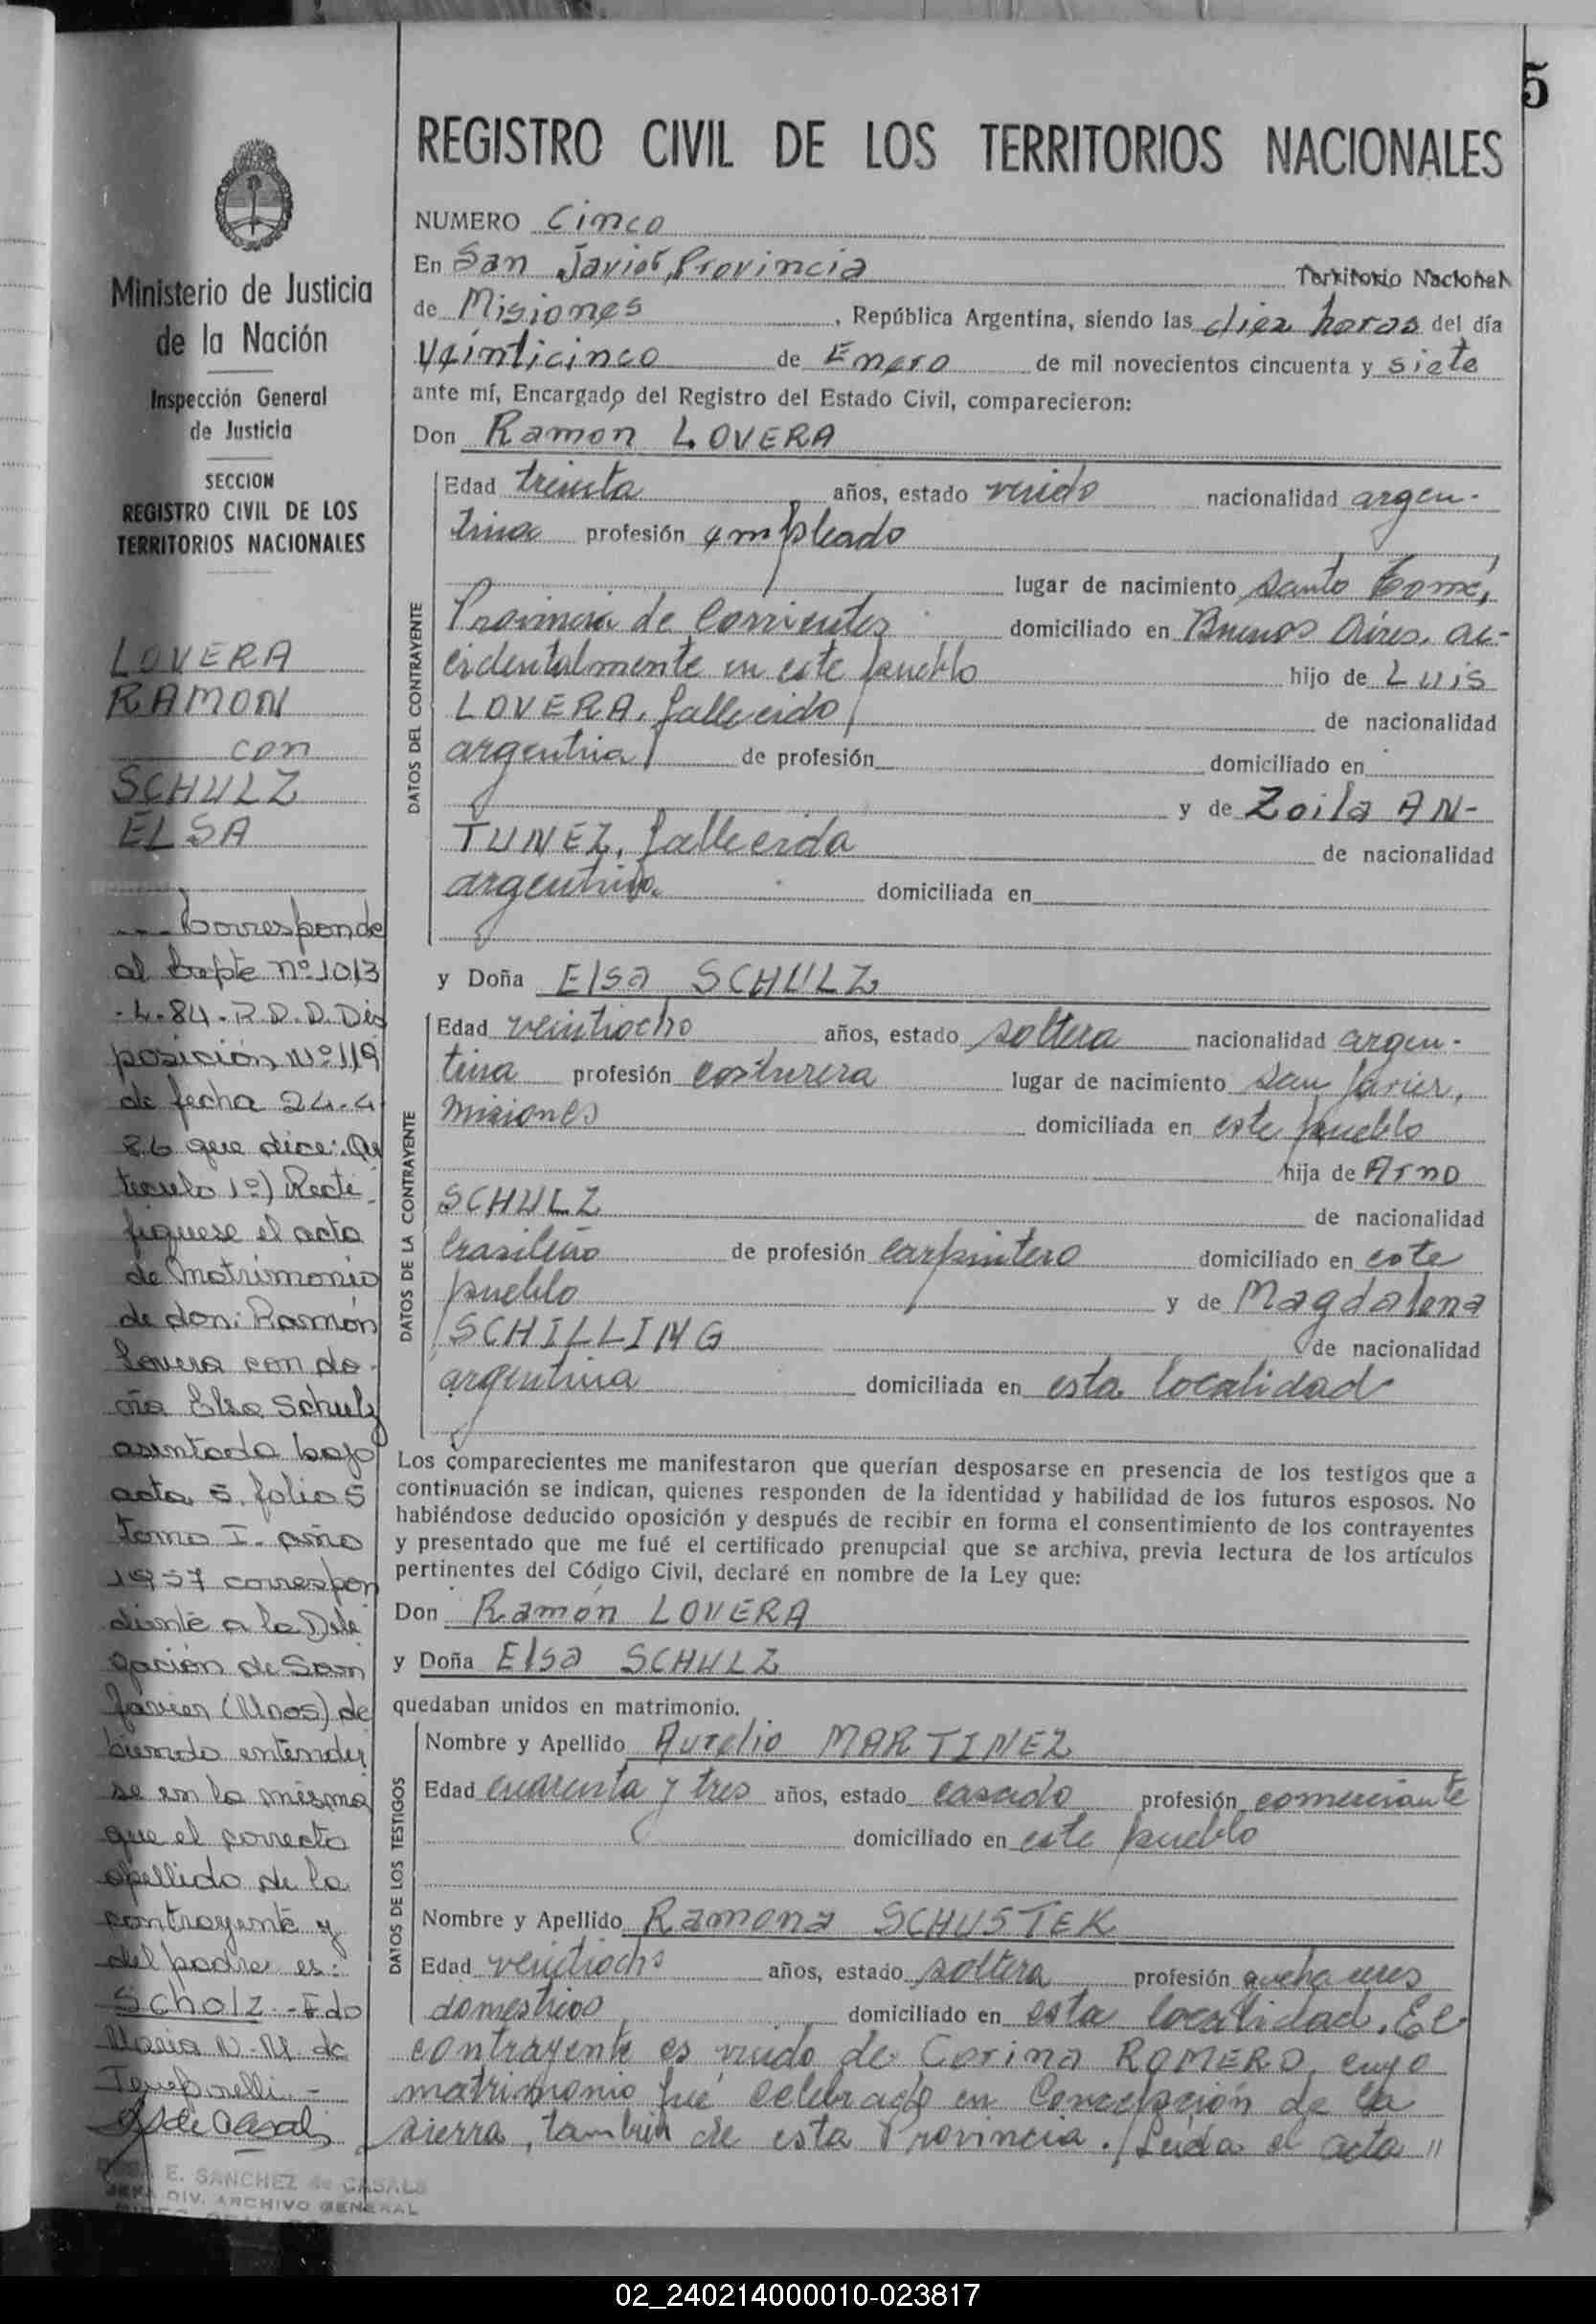 5
REGISTRO CIVIL DE LOS TERRITORIOS NACIONALES
Ministerio de Justicia
de la Nación
Inspección General
de Justicia
SECCION
REGISTRO CIVIL DE LOS
TERRITORIOS NACIONALES
LOVERA
RAMON
con
SCHULZ
ELSA
Corresponde
al Expte nº 1013
-L-84-R.D.D. Dis
posición Nº 119
de fecha 24-4
86 que dice: Ar
tículo 1º) Recti
fíquese el acta
de Matrimonio
de don: Ramón
Lovera con do-
ña Elsa Schulz
asentada bajo
acta 5. folio 5
tomo I- año
1957 correspon
diente a la Dele
gación de San
Javier (Mnes) de
biendo entender
se en la misma
que el correcto
apellido de la
contrayente y
del padre es:
Scholz - Fdo
María N. M. de
E. SANCHEZ de CASALS
DIV. ARCHIVO GENERAL
NUMERO Cinco
En San Javier, Provincia Territorio Nacional
de Misiones, República Argentina, siendo las diez horas del día
Veinticinco de Enero de mil novecientos cincuenta y siete
ante mí, Encargado del Registro del Estado Civil, comparecieron:
Don Ramón LOVERA
DATOS DEL CONTRAYENTE
Edad treinta años, estado viudo nacionalidad argen-
tina profesión empleado
lugar de nacimiento Santo Tomé,
Provincia de Corrientes domiciliado en Buenos Aires, ac-
cidentalmente en este pueblo hijo de Luis
LOVERA, fallecido de nacionalidad
argentina de profesión domiciliado en
y de Zoila AN-
TUNEZ, fallecida de nacionalidad
argentina domiciliada en
y Doña Elsa SCHULZ
DATOS DE LA CONTRAYENTE
Edad veintiocho años, estado soltera nacionalidad argen-
tina profesión costurera lugar de nacimiento San Javier,
Misiones domiciliada en este pueblo
hija de Arno
SCHULZ de nacionalidad
brasileño de profesión carpintero domiciliado en este
pueblo y de Magdalena
SCHILLING de nacionalidad
argentina domiciliada en esta localidad
Los comparecientes me manifestaron que querían desposarse en presencia de los testigos que a
continuación se indican, quienes responden de la identidad y habilidad de los futuros esposos. No
habiéndose deducido oposición y después de recibir en forma el consentimiento de los contrayentes
y presentado que me fué el certificado prenupcial que se archiva, previa lectura de los artículos
pertinentes del Código Civil, declaré en nombre de la Ley que:
Don Ramón LOVERA
y Doña Elsa SCHULZ
quedaban unidos en matrimonio.
DATOS DE LOS TESTIGOS
Nombre y Apellido Aurelio MARTINEZ
Edad cuarenta y tres años, estado casado profesión comerciante
domiciliado en este pueblo
Nombre y Apellido Ramona SCHUSTEK
Edad veintiocho años, estado soltera profesión quehaceres
domesticos domiciliado en esta localidad. El
contrayente es viudo de Corina ROMERO, cuyo
matrimonio fué celebrado en Concepción de la
sierra, también de esta Provincia. Leída el acta "
02_240214000010-023817